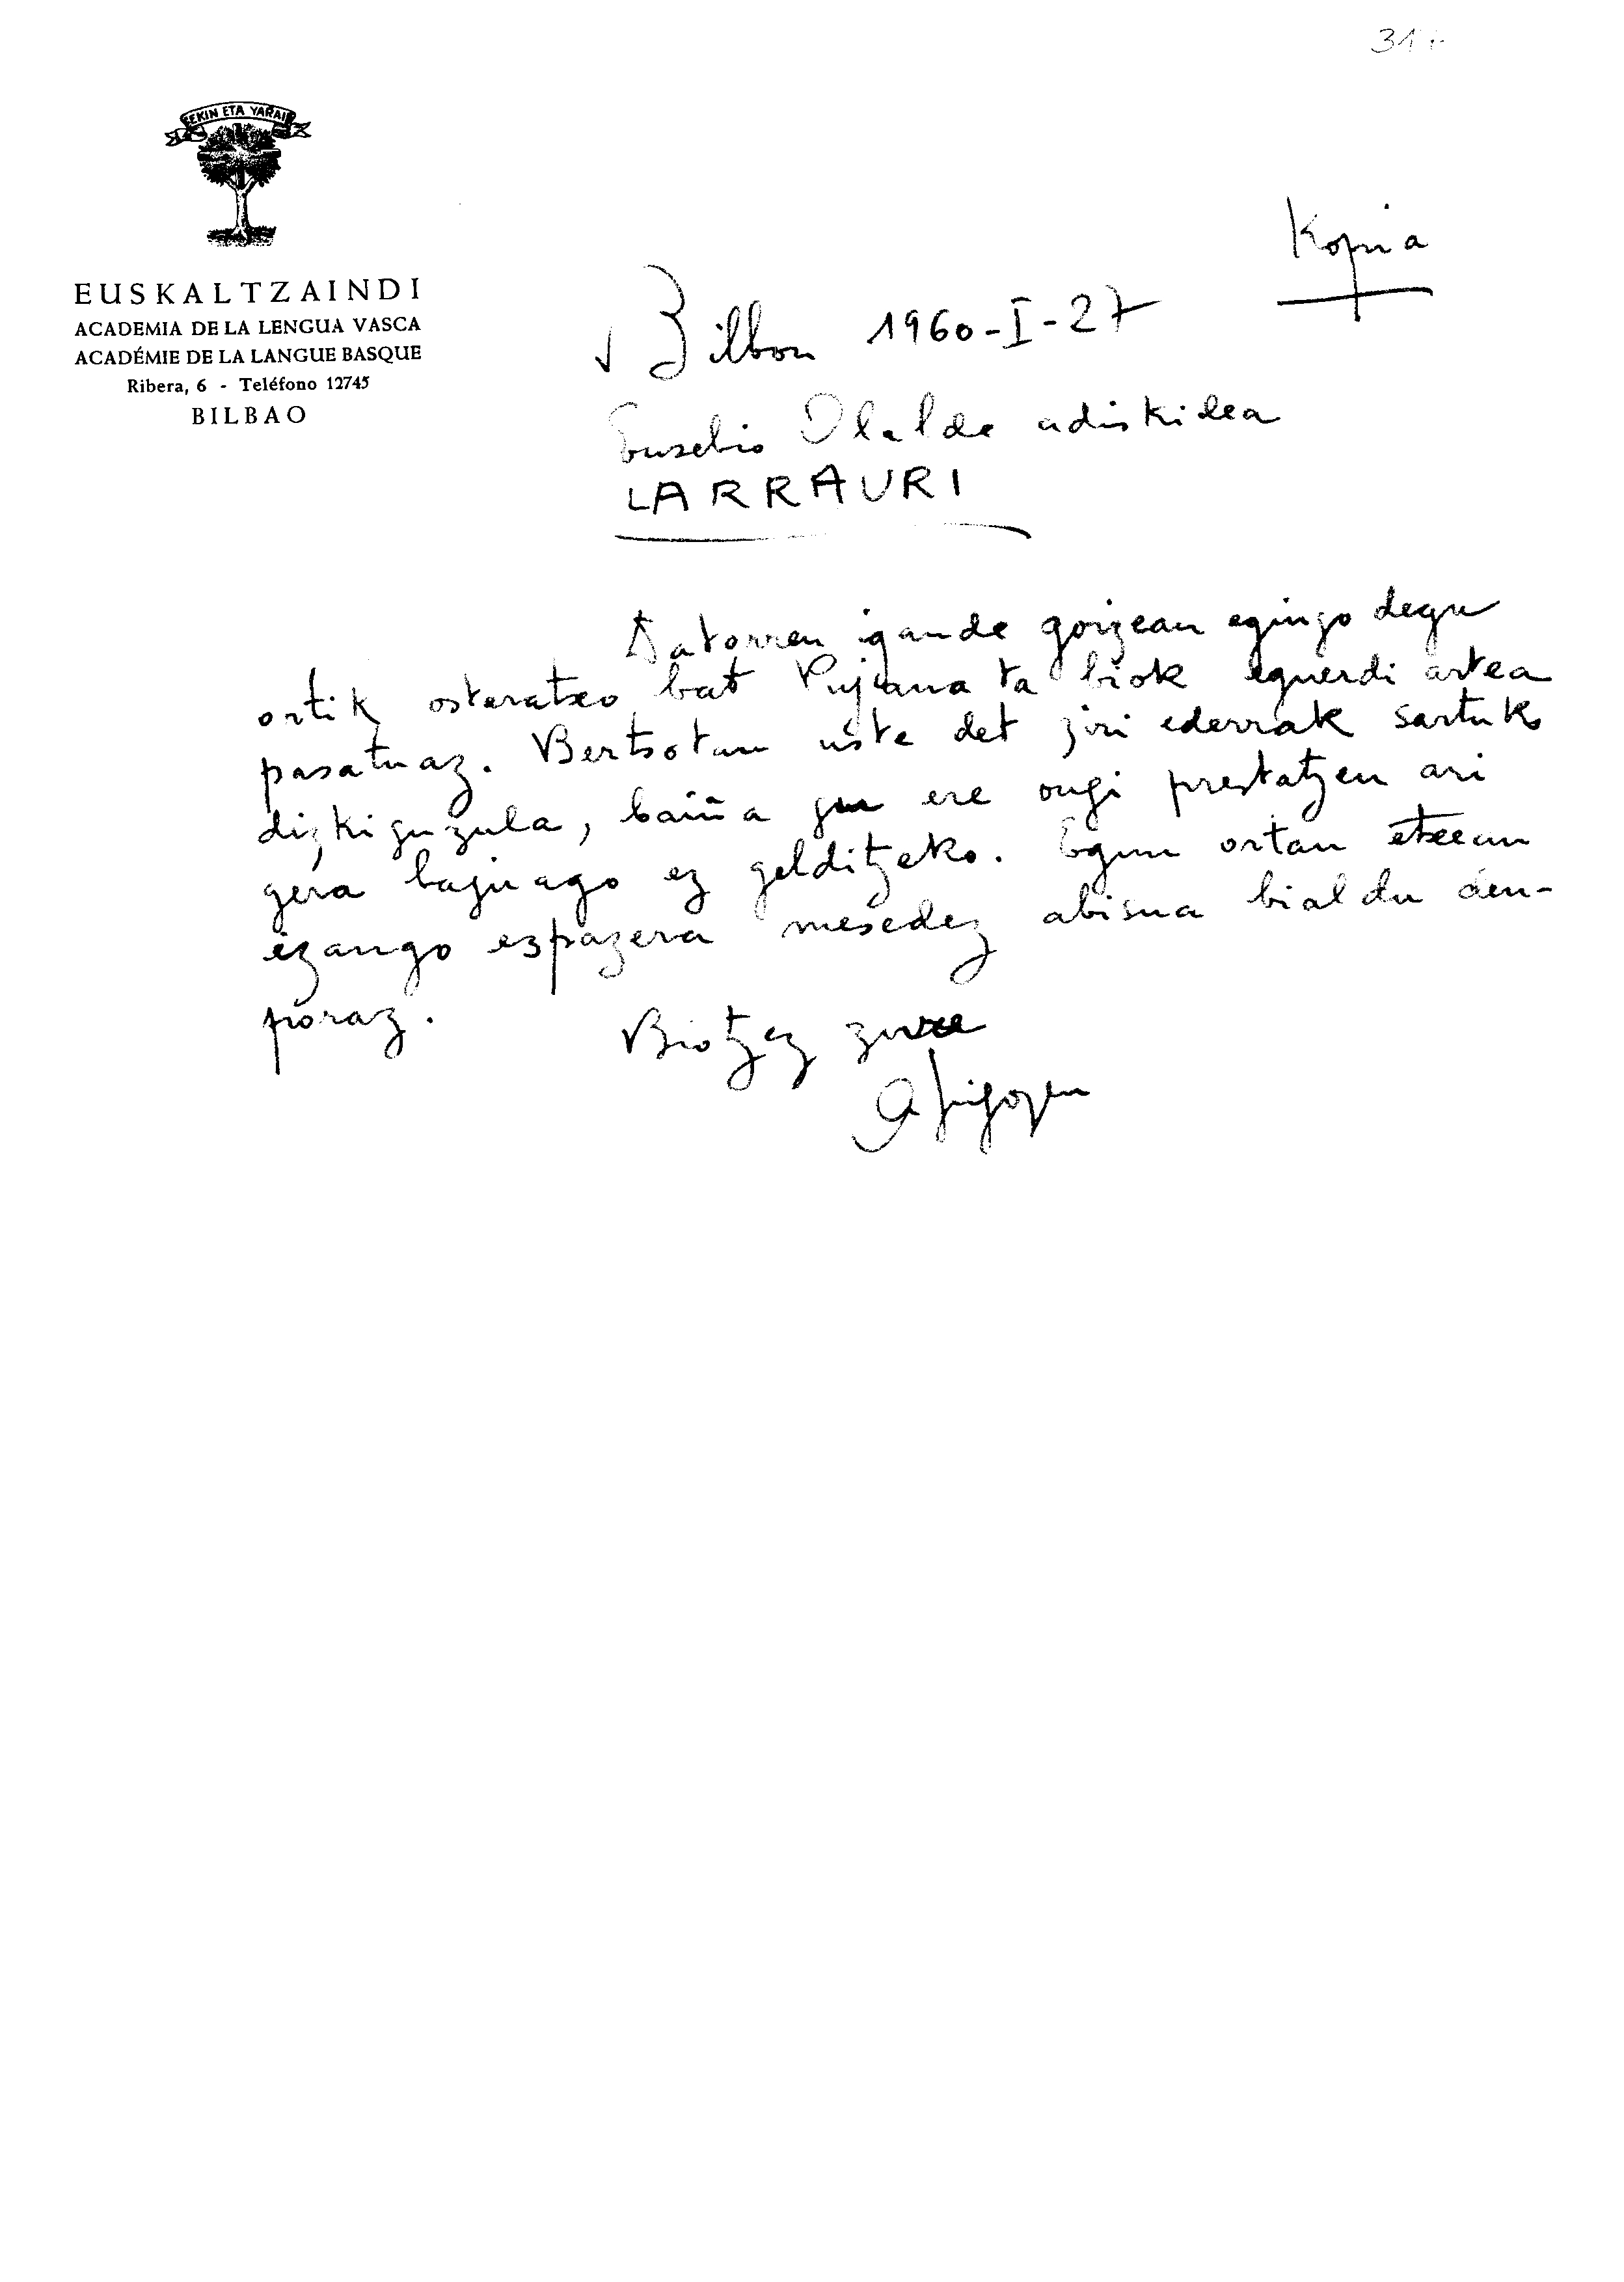 EKIN ETA YARAI
EUSKALTZAINDI
ACADEMIA DE LA LENGUA VASCA
ACADÉMIE DE LA LANGUE BASQUE
Ribera, 6 - Teléfono 12745
BILBAO
Kopia
Bilbon 1960-I-27
Eusebio Olalde adiskidea
LARRAURI
Datorren igande goizean egingo degu
ortik osteratxo bat Pujana ta biok eguerdi artea
pasatuaz. Bertsotan uste det ziri ederrak sartuko
dizkiguzula, baiña gu ere ongi prestatzen ari
gera bajuago ez gelditzeko. Egun ortan etxean
izango ezpazera mesedez abisua bialdu den-
poraz.
Biotzez zure